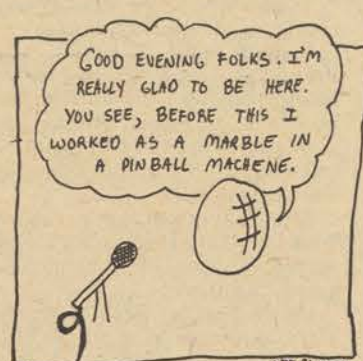 GOOD EVENING FOLKS. I'M
REALLY GLAD TO BE HERE.
YOU SEE, BEFORE THIS I
WORKED AS A MARBLE IN
A PINBALL MACHENE.